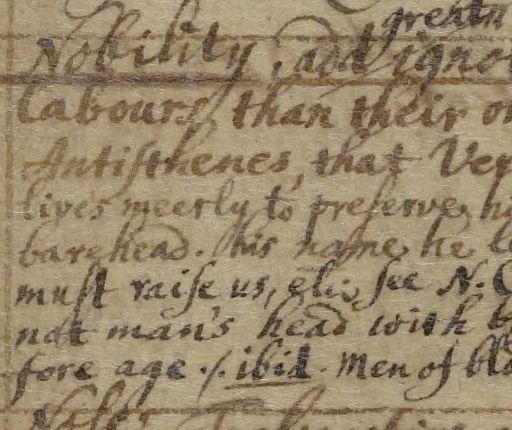 greater
Nobility, add ignob
labours, than their o
Antiſthenes, that Ver
lives meerly to preſerve hi
barehead. his name he l
muſt raiſe us, &c. ſee N. C
not man's head with
fore age ./. ibid. Men of blo